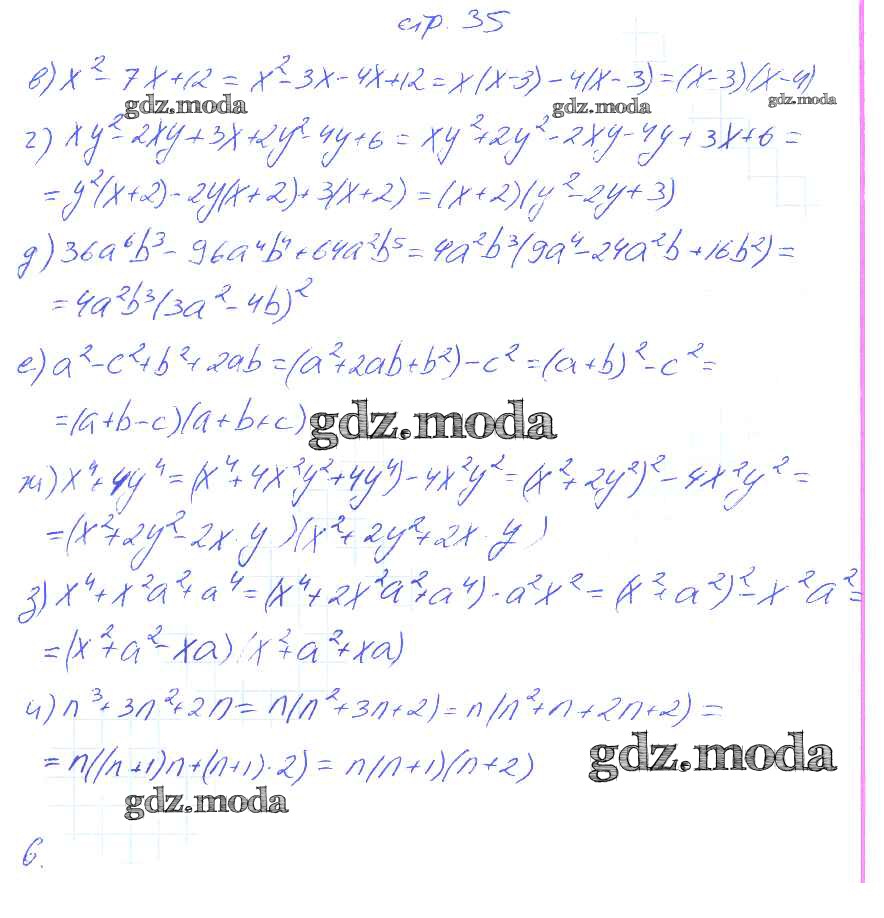 стр. 35
в) x² - 7x + 12 = x² - 3x - 4x + 12 = x(x-3) - 4(x-3) = (x-3)(x-4)
gdz.moda gdz.moda gdz.moda
г) xy² - 2xy + 3x + 2y² - 4y + 6 = xy² + 2y² - 2xy - 4y + 3x + 6 =
= y²(x+2) - 2y(x+2) + 3(x+2) = (x+2)(y² - 2y + 3)
д) 36a⁶b³ - 96a⁴b⁴ + 64a²b⁵ = 4a²b³(9a⁴ - 24a²b + 16b²) =
= 4a²b³(3a² - 4b)²
е) a² - c² + b² + 2ab = (a² + 2ab + b²) - c² = (a+b)² - c² =
= (a+b-c)(a+b+c) gdz.moda
ж) x⁴ + 4y⁴ = (x⁴ + 4x²y² + 4y⁴) - 4x²y² = (x² + 2y²)² - 4x²y² =
= (x² + 2y² - 2x·y)(x² + 2y² + 2x·y)
з) x⁴ + x²a² + a⁴ = (x⁴ + 2x²a² + a⁴) - a²x² = (x² + a²)² - x²a² =
= (x² + a² - xa)(x² + a² + xa)
и) n³ + 3n² + 2n = n(n² + 3n + 2) = n(n² + n + 2n + 2) =
= n((n+1)n + (n+1)·2) = n(n+1)(n+2) gdz.moda
gdz.moda
6.